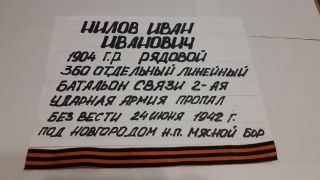 НИЛОВ ИВАН
ИВАНОВИЧ
1904 Г.Р. РЯДОВОЙ
360 ОТДЕЛЬНЫЙ ЛИНЕЙНЫЙ
БАТАЛЬОН СВЯЗИ 2-АЯ
УДАРНАЯ АРМИЯ ПРОПАЛ
БЕЗ ВЕСТИ 24 ИЮНЯ 1942 Г.
ПОД НОВГОРОДОМ Н.П. МЯСНОЙ БОР